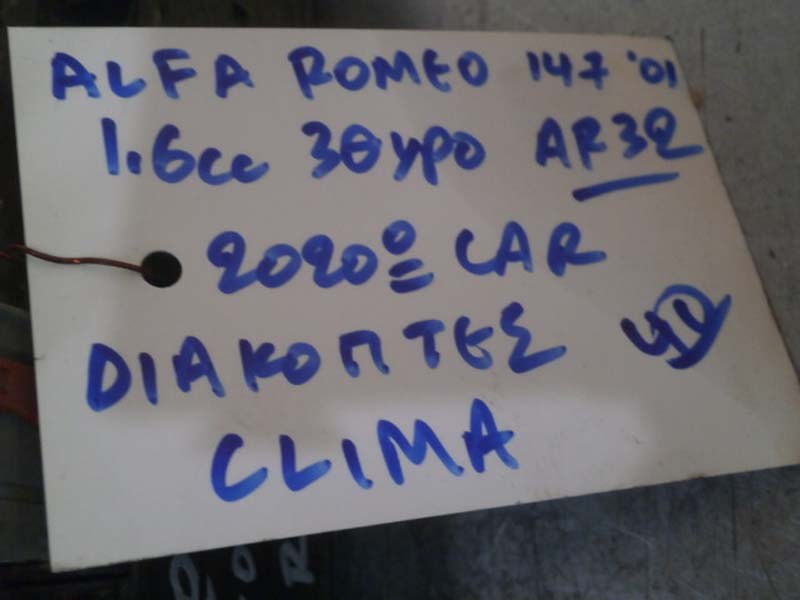 ALFA ROMEO 147 '01
1.6cc 3ΘΥΡΟ AR32
2020º CAR
DΙΑΚΟΠΤΕΣ
CLIMA